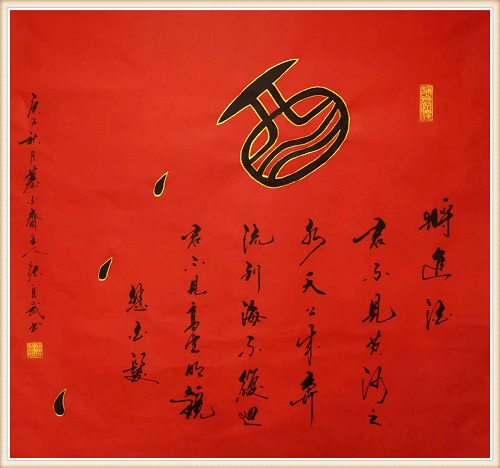 將進酒
君不見黄河之
水天上來奔
流到海不復迴
君不見高堂明鏡
悲白髮
庚子秋月 齋主人 書